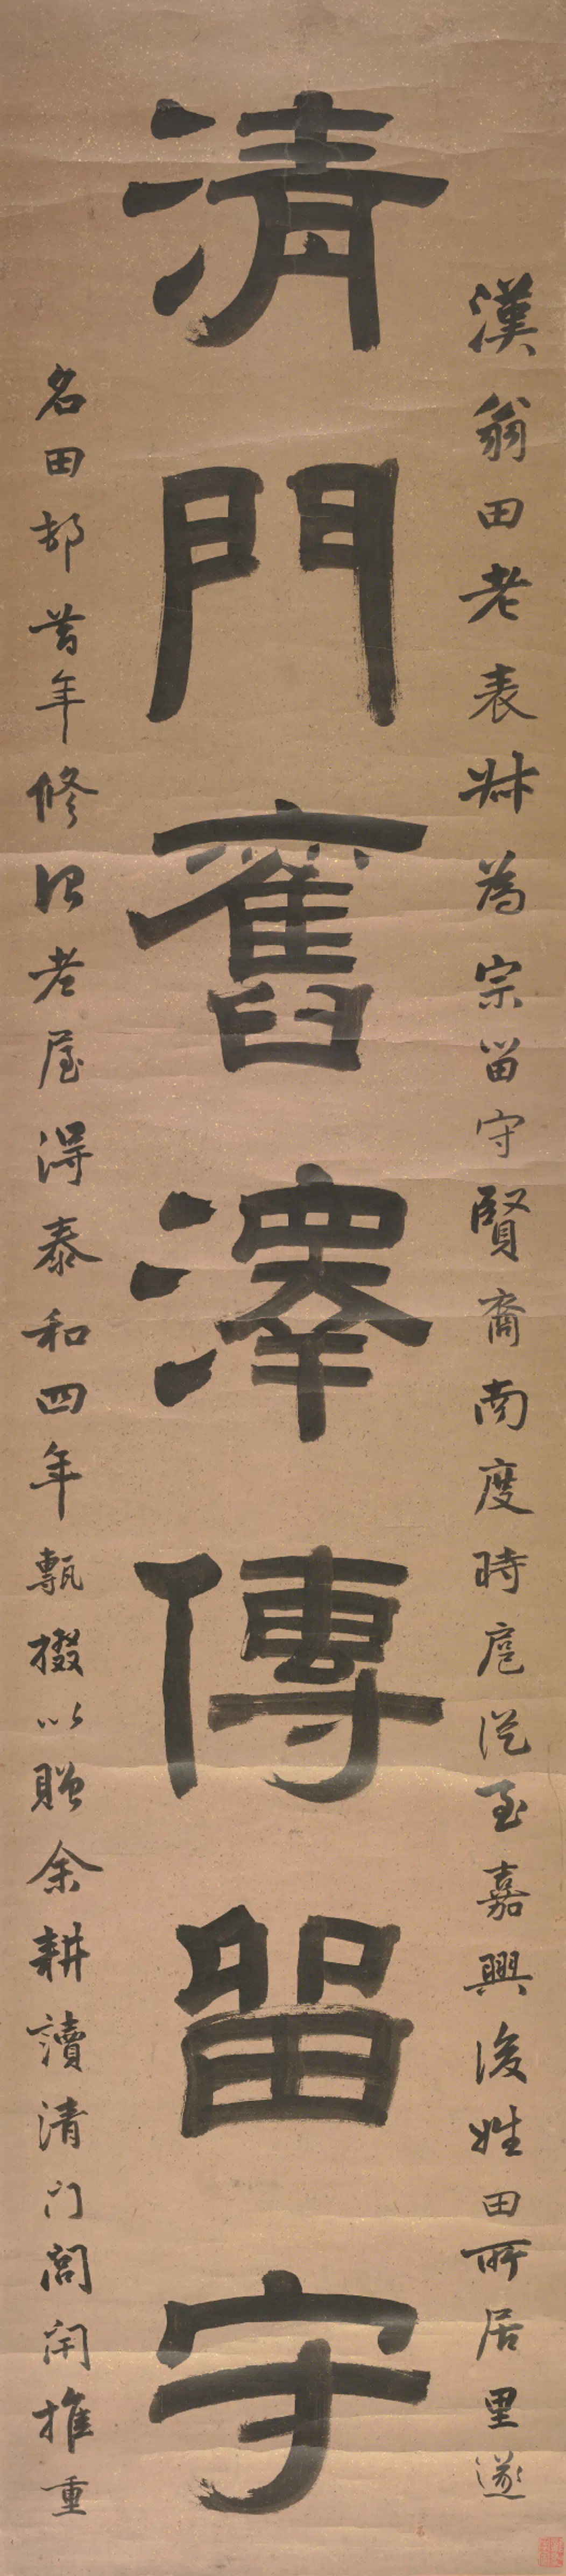 漢翁田老表叔為宗留守賢裔南度時扈從至嘉興後姓田所居里遂
清門舊澤傳留守
名田邨昔年修治老屋得泰和四年甎掇以贈余耕讀清门閭閈推重